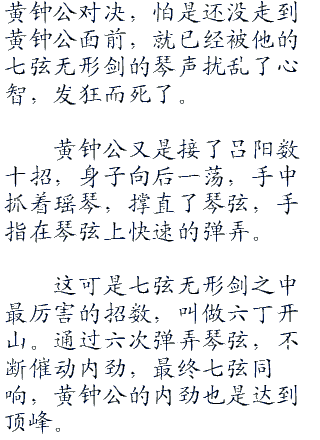 黄钟公对决，怕是还没走到
黄钟公面前，就已经被他的
七弦无形剑的琴声扰乱了心
智，发狂而死了。
黄钟公又是接了吕阳数
十招，身子向后一荡，手中
抓着瑶琴，撑直了琴弦，手
指在琴弦上快速的弹弄。
这可是七弦无形剑之中
最厉害的招数，叫做六丁开
山。通过六次弹弄琴弦，不
断催动内劲，最终七弦同
响，黄钟公的内劲也是达到
顶峰。